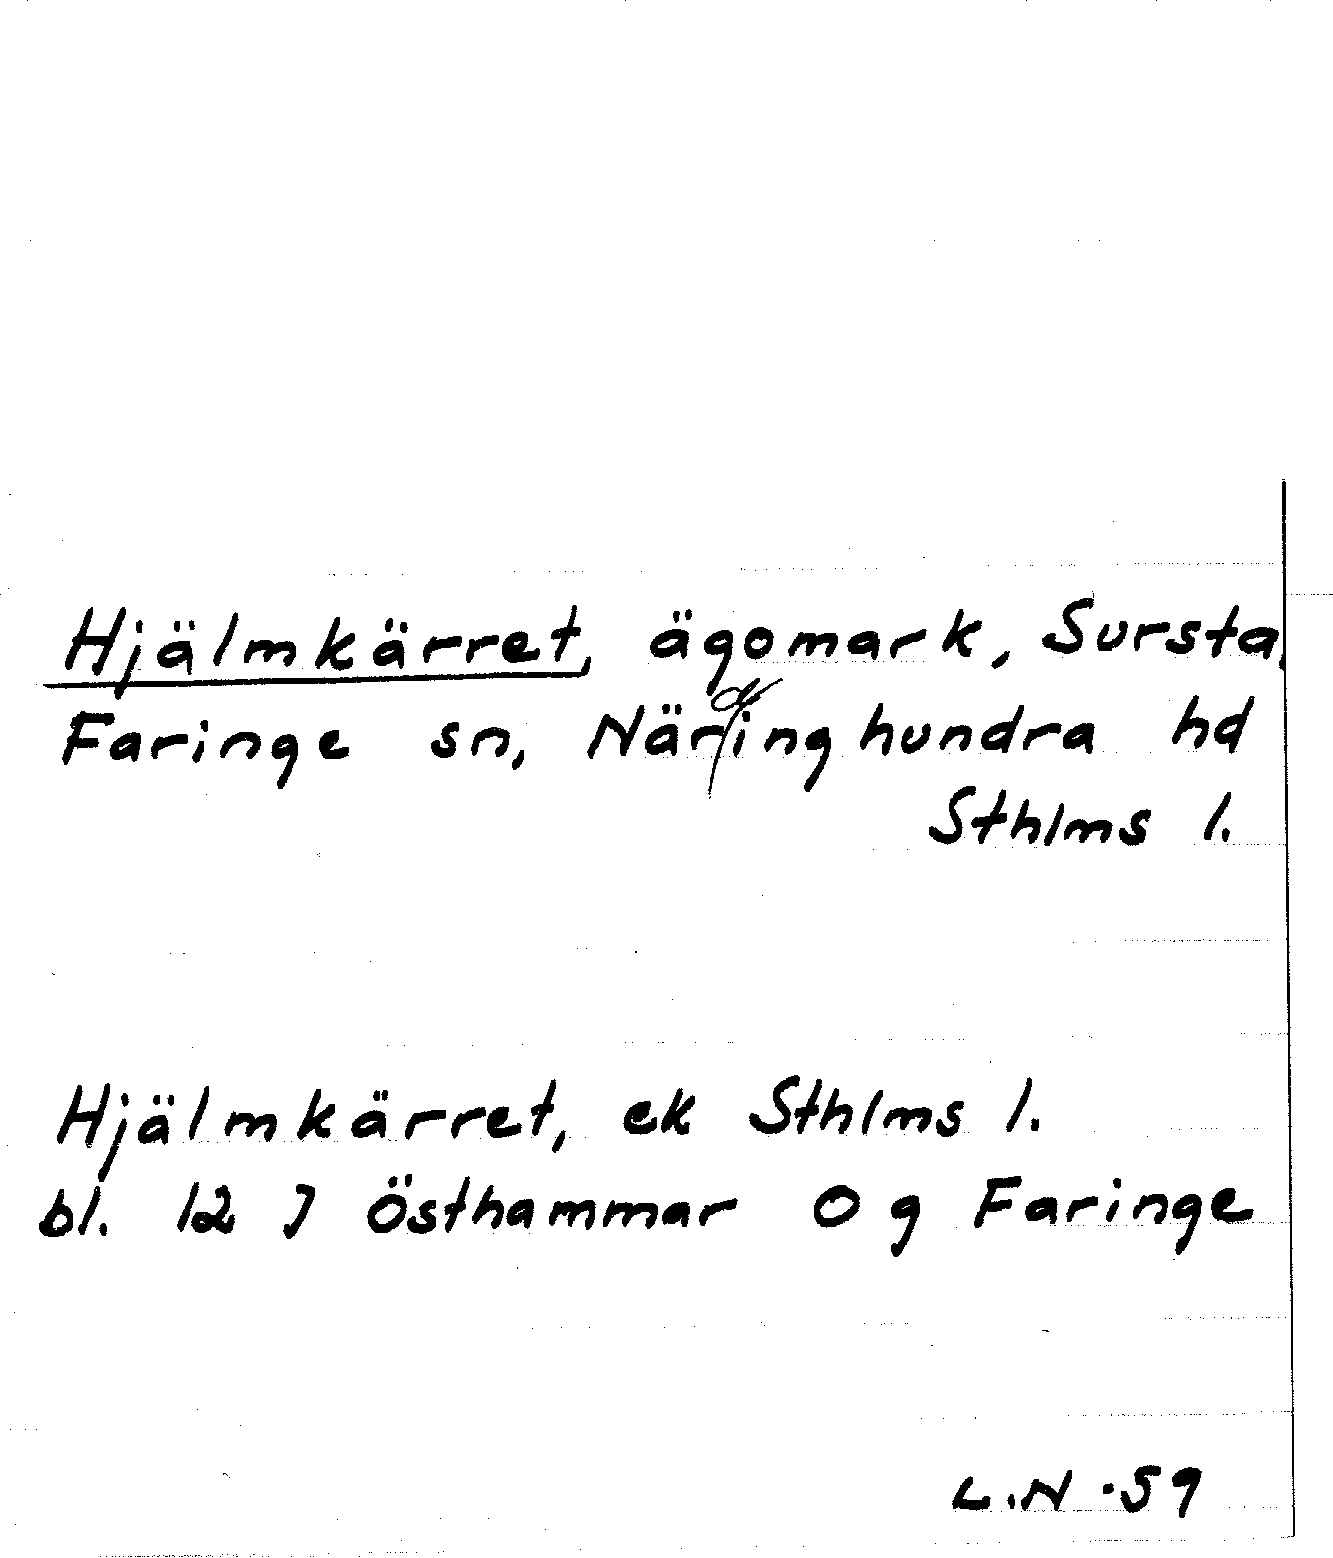 Hjälmkärret, ägomark, Sursta,
Faringe sn, Näringhundra hd
Sthlms l.
Hjälmkärret, ek Sthlms l.
bl. 12 J Östhammar Og Faringe
L.N. 59